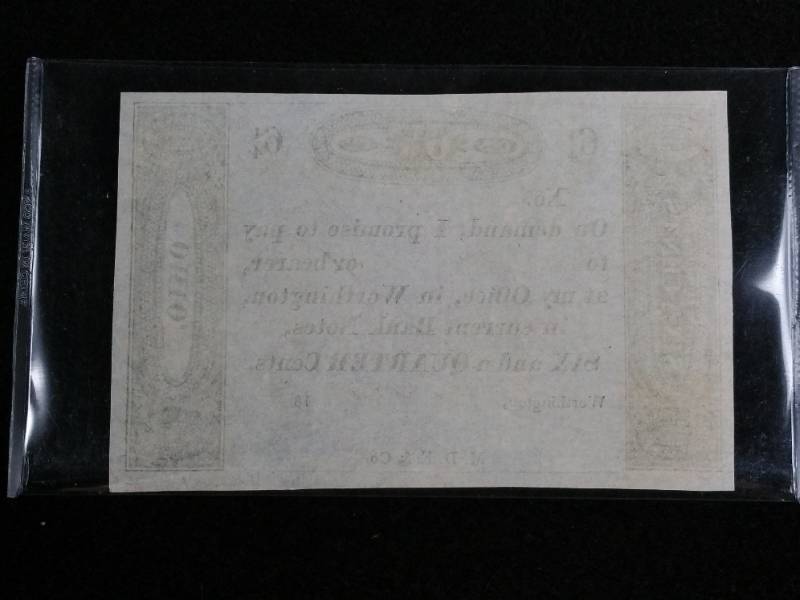 6¼ 6¼
OHIO.
No.
On demand, I promise to pay
to or bearer,
at my Office, in Worthington,
in current Bank Notes,
SIX and a QUARTER Cents.
Worthington, 18
& Co